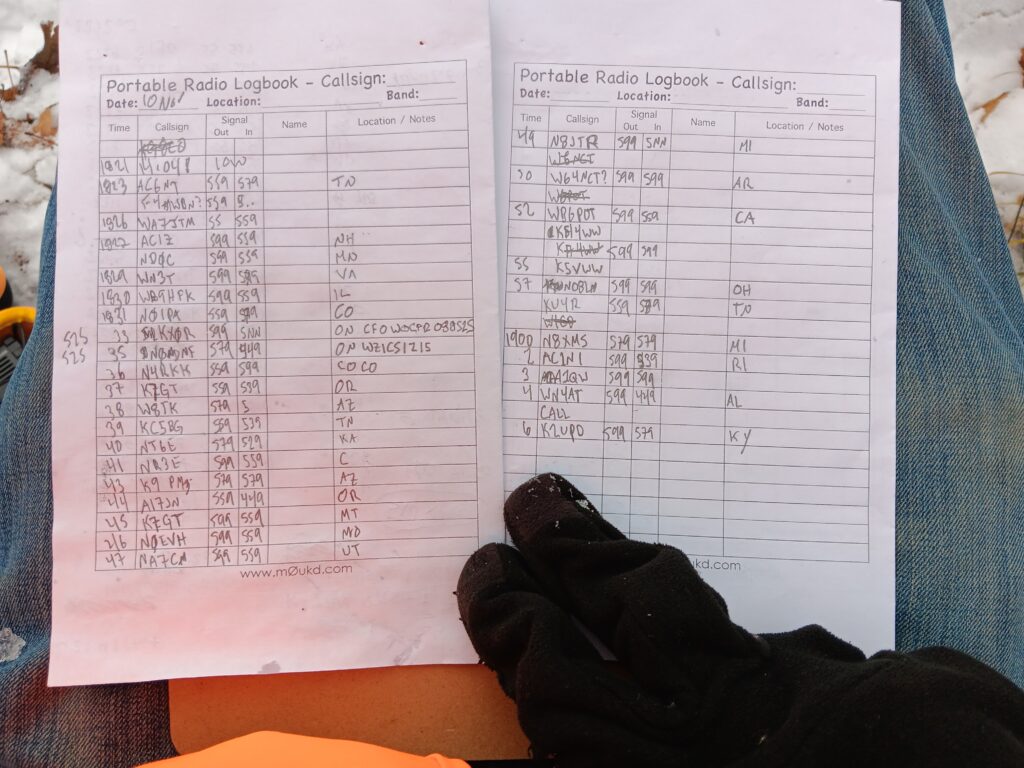 Portable Radio Logbook - Callsign:
Date: 10 Nov Location: Band:
Time Callsign Signal Out In Name Location / Notes
1821 LOW
1823 AC6NT 559 579 TN
559
1826 WA7JTM 55 559
1827 AC1Z 599 559 NH
ND0C 599 559 MN
1829 WN3T 599 VA
1930 WB9HFK 599 559 IL
1931 NO1PK 559 579 CO
525 33 599 5NN ON
525 35 579 449 ON
36 N4RKH 559 599 CO CO
37 K7GT 559 539 OR
38 W8TK 579 5 AZ
39 KC5BG 559 539 TN
40 NT6E 579 529 KA
41 NR3E 599 559 C
43 K9 579 579 AZ
44 AI7JN 559 449 OR
45 K7GT 599 559 MT
46 N0EVH 599 559 MO
47 NA7CM 559 UT
www.m0ukd.com
Portable Radio Logbook - Callsign:
Date: Location: Band:
Time Callsign Signal Out In Name Location / Notes
49 N8JTR 599 5NN MI
50 W64NCT? 599 599 AR
52 WB6POT 599 559 CA
599 599
55 K5VWW
57 599 599 OH
KU4R 559 TN
1900 N8XMS 579 579 MI
2 AC1N1 599 RI
3 A1QW 599 599
4 WN4AT 599 449 AL
CALL
6 K2UPD 599 579 KY
ukd.com